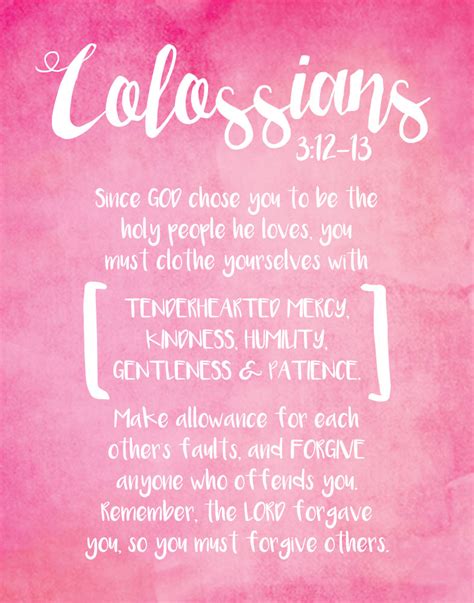 Colossians
3:12-13
Since GOD chose you to be the
holy people he loves, you
must clothe yourselves with
TENDERHEARTED MERCY,
KINDNESS, HUMILITY,
GENTLENESS & PATIENCE.
Make allowance for each
others faults, and FORGIVE
anyone who offends you.
Remember, the LORD forgave
you, so you must forgive others.